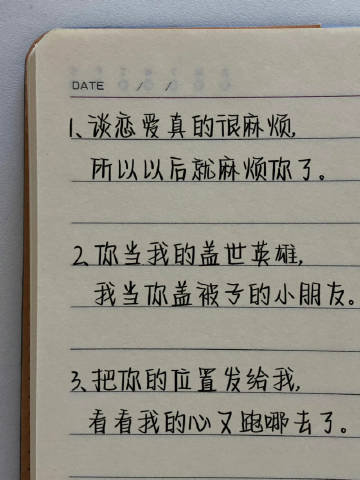 DATE / /
1、谈恋爱真的很麻烦,
所以以后就麻烦你了。
2、你当我的盖世英雄,
我当你盖被子的小朋友。
3、把你的位置发给我,
看看我的心又跑哪去了。